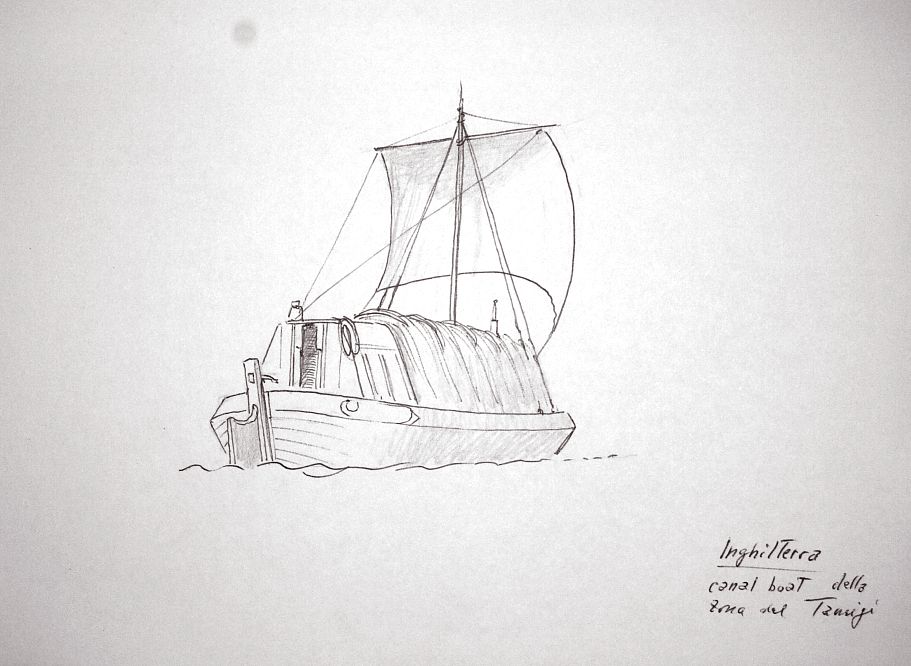 Inghilterra
canal boat della
zona del Tamigi